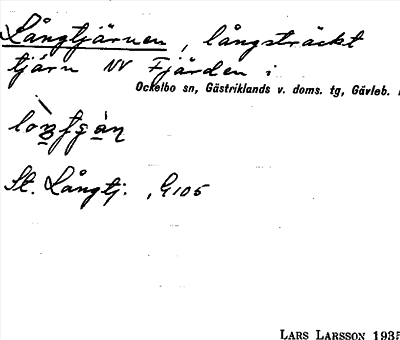 Långtjärnen, långsträckt
tjärn NV Fjärden i
Ockelbo sn, Gästriklands v. doms. tg, Gävleb.
St. Långtj. , G105
LARS LARSSON 1935